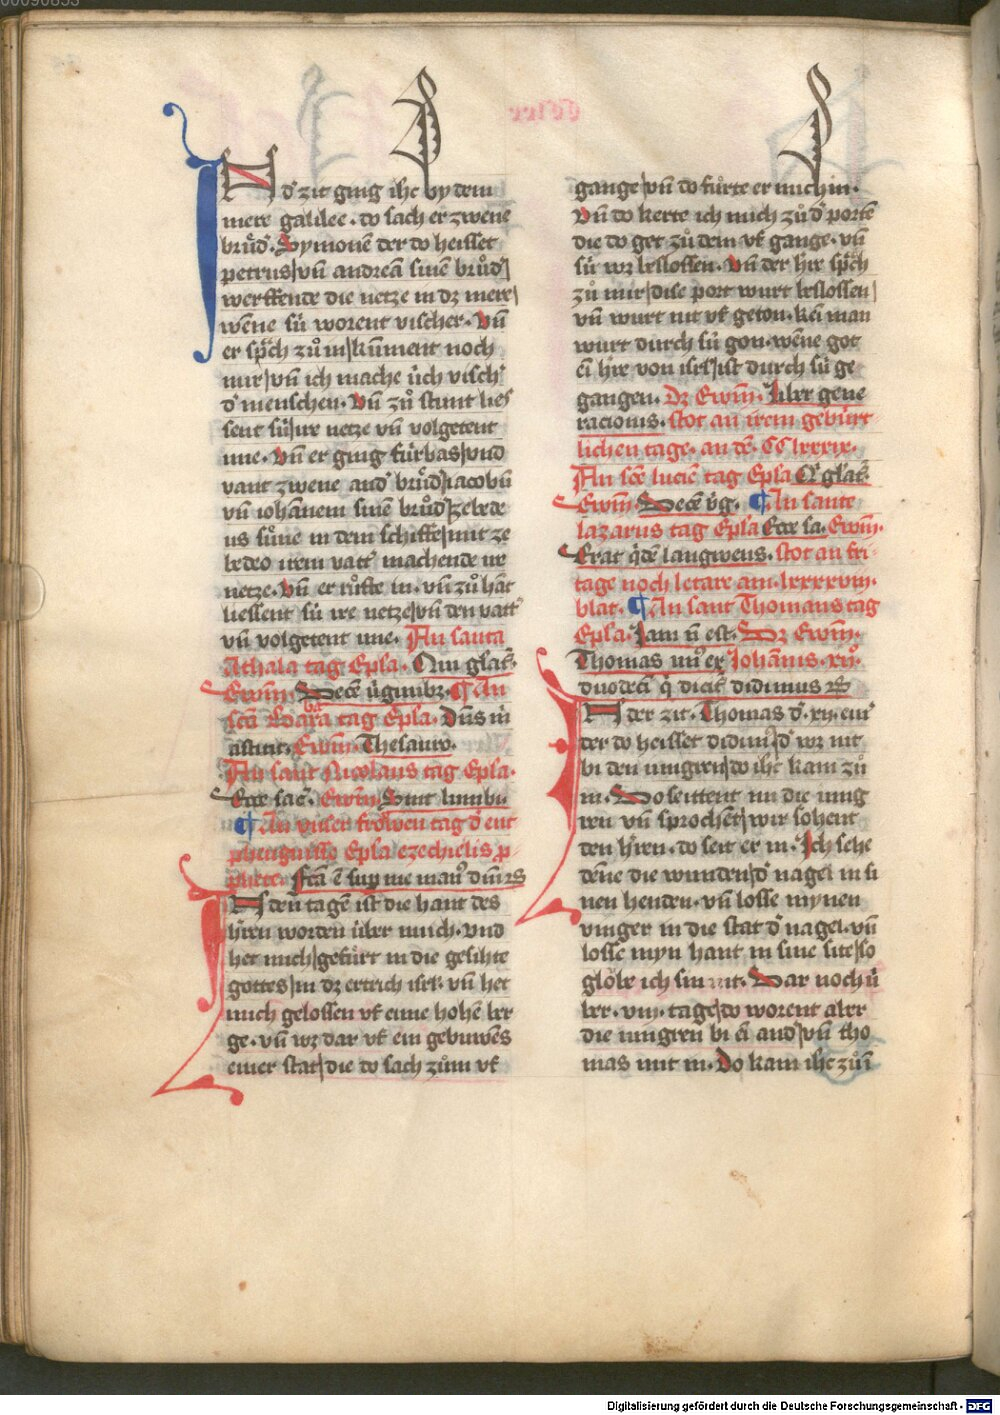 IN d' zit ging ihc by dem
mere galilee · do sach er zwene
brůd' · Symonē der do heisset
petrus / vn̄ andreā sinē brůd' /
werffende die netze in dz mere /
wēne sü worent vischer · Vn̄
er sp̄ch zů in / kūment noch
mir / vn̄ ich mache üch visch'
d' menschen · Vn̄ zů stunt lies
sent sü ire netze vn̄ volgetent
ime · Vn̄ er ging fürbas / vnd
vant zwene and' brüd' / iacobū
vn̄ iohānem sinē brůd' / zebede
us süne in dem schiffe / mit ze
bedeo irem vatt' machende ire
netze · Vn̄ er růfte in · vn̄ zů hāt
liessent sü ire netze / vn̄ den vatt'
vn̄ volgetent ime · An santa
Athala tag Epl̄a · Qui gl̄at'
Ewm̄ · Decē v̄ginibz · ¶ An
scā Barbara tag Epl̄a · Dn̄s m̄
astitit · Ewm̄ · Thesauro ·
An sant Nicolaus tag Epl̄a ·
Ecce sac' · Ewm̄ · Sint lumbi
¶ An vnser frowen tag d' ent
phengnisse Epl̄a ezechielis p̄
phete · Fc̄a ē sup me man' dn̄i
IN den tagē ist die hant des
h'ren worden über mich · vnd
het mich / gefürt in die gesihte
gottes / in dz ertrich isrl · vn̄ het
mich gelossen vf eime hohē ber
ge · vn̄ wz dar vf ein gebuwēs
einer stat / die do sach zům vf
gange / vn̄ do fůrte er mich in ·
Vn̄ do kerte ich mich zů d' portē
die do get zů dem vf gange · vn̄
sü wz beslossen · Vn̄ der h're sp̄ch
zů mir / dise port wurt beslossen /
vn̄ wurt nit vf geton · kei man
wurt durch sü gon · wēne got
ei h're von isrl / ist durch sü ge
gangen · Dz Ewm̄ · Liber gene
racionis · stot an irem gebürt
lichen tage · an dē · CClxxxix ·
An scē luciē tag Epl̄a Q' gl̄at'
Ewm̄ · Decē v̄g · ¶ An sante
lazarus tag Epl̄a Ecce sa · Ewm̄ ·
Erat q̄dē langwens · stot an fri-
tage noch letare am · lxxxxviij ·
blat · ¶ An sant Thomans tag
Epl̄a · Iam n̄ est · Dz Ewm̄ ·
Thomas vn' ex Iohānis · xx' ·
duodecī q̄ dicit' didimus
IN der zit · Thomas d' xij · ein'
der do heisset didim' / d' wz nit
bi den iungren / do ihc kam zů
in · Do seitent im die iung
ren vn̄ sprochēt / wir sohent
den h'ren · do seit er in · Ich sehe
dēne die wunden / d' nagel in si
nen henden · vn̄ losse mynen
vinger in die stat d' nagel · vn̄
losse myn hant in sine site / so
glöbe ich sin nit · Dar noch ü
ber · viij · tage / do worent aber
die iungren bi ei and' / vn̄ tho
mas mit in · Do kam ihc zů ī
Digitalisierung gefördert durch die Deutsche Forschungsgemeinschaft - DFG